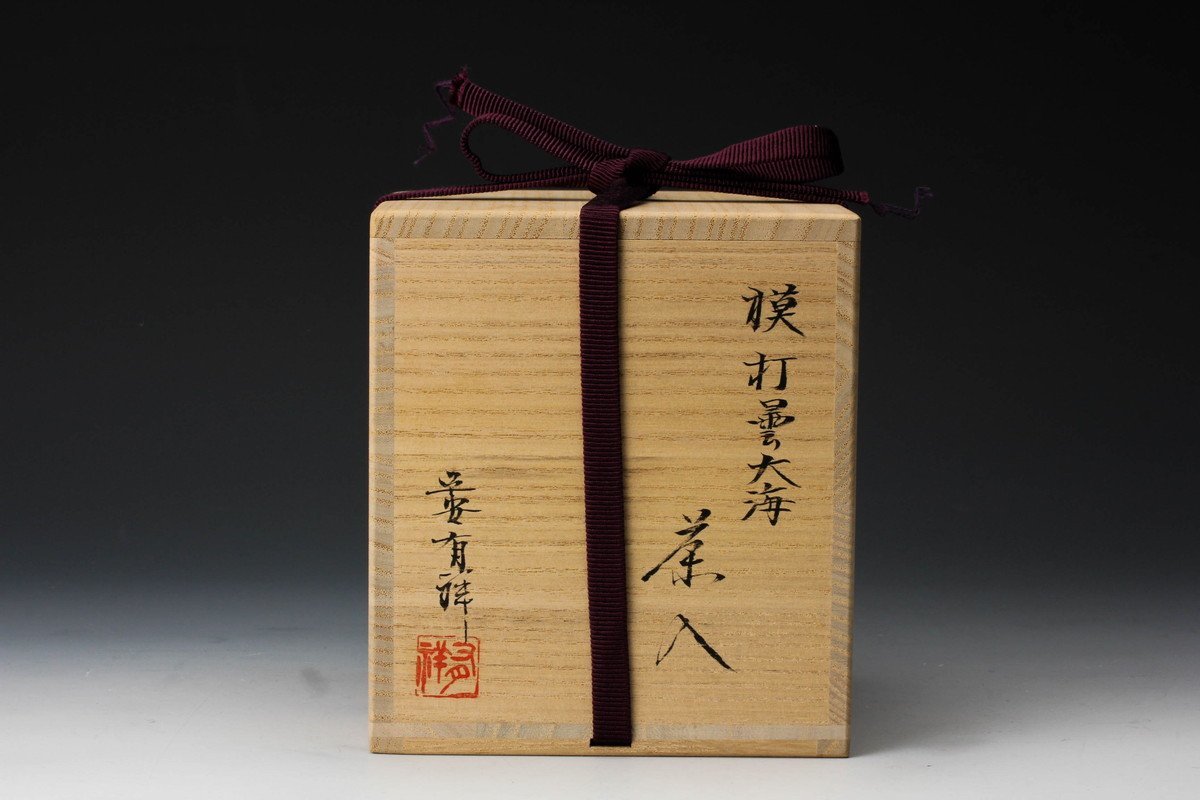 模 打曇大海
茶入
有祥
有祥